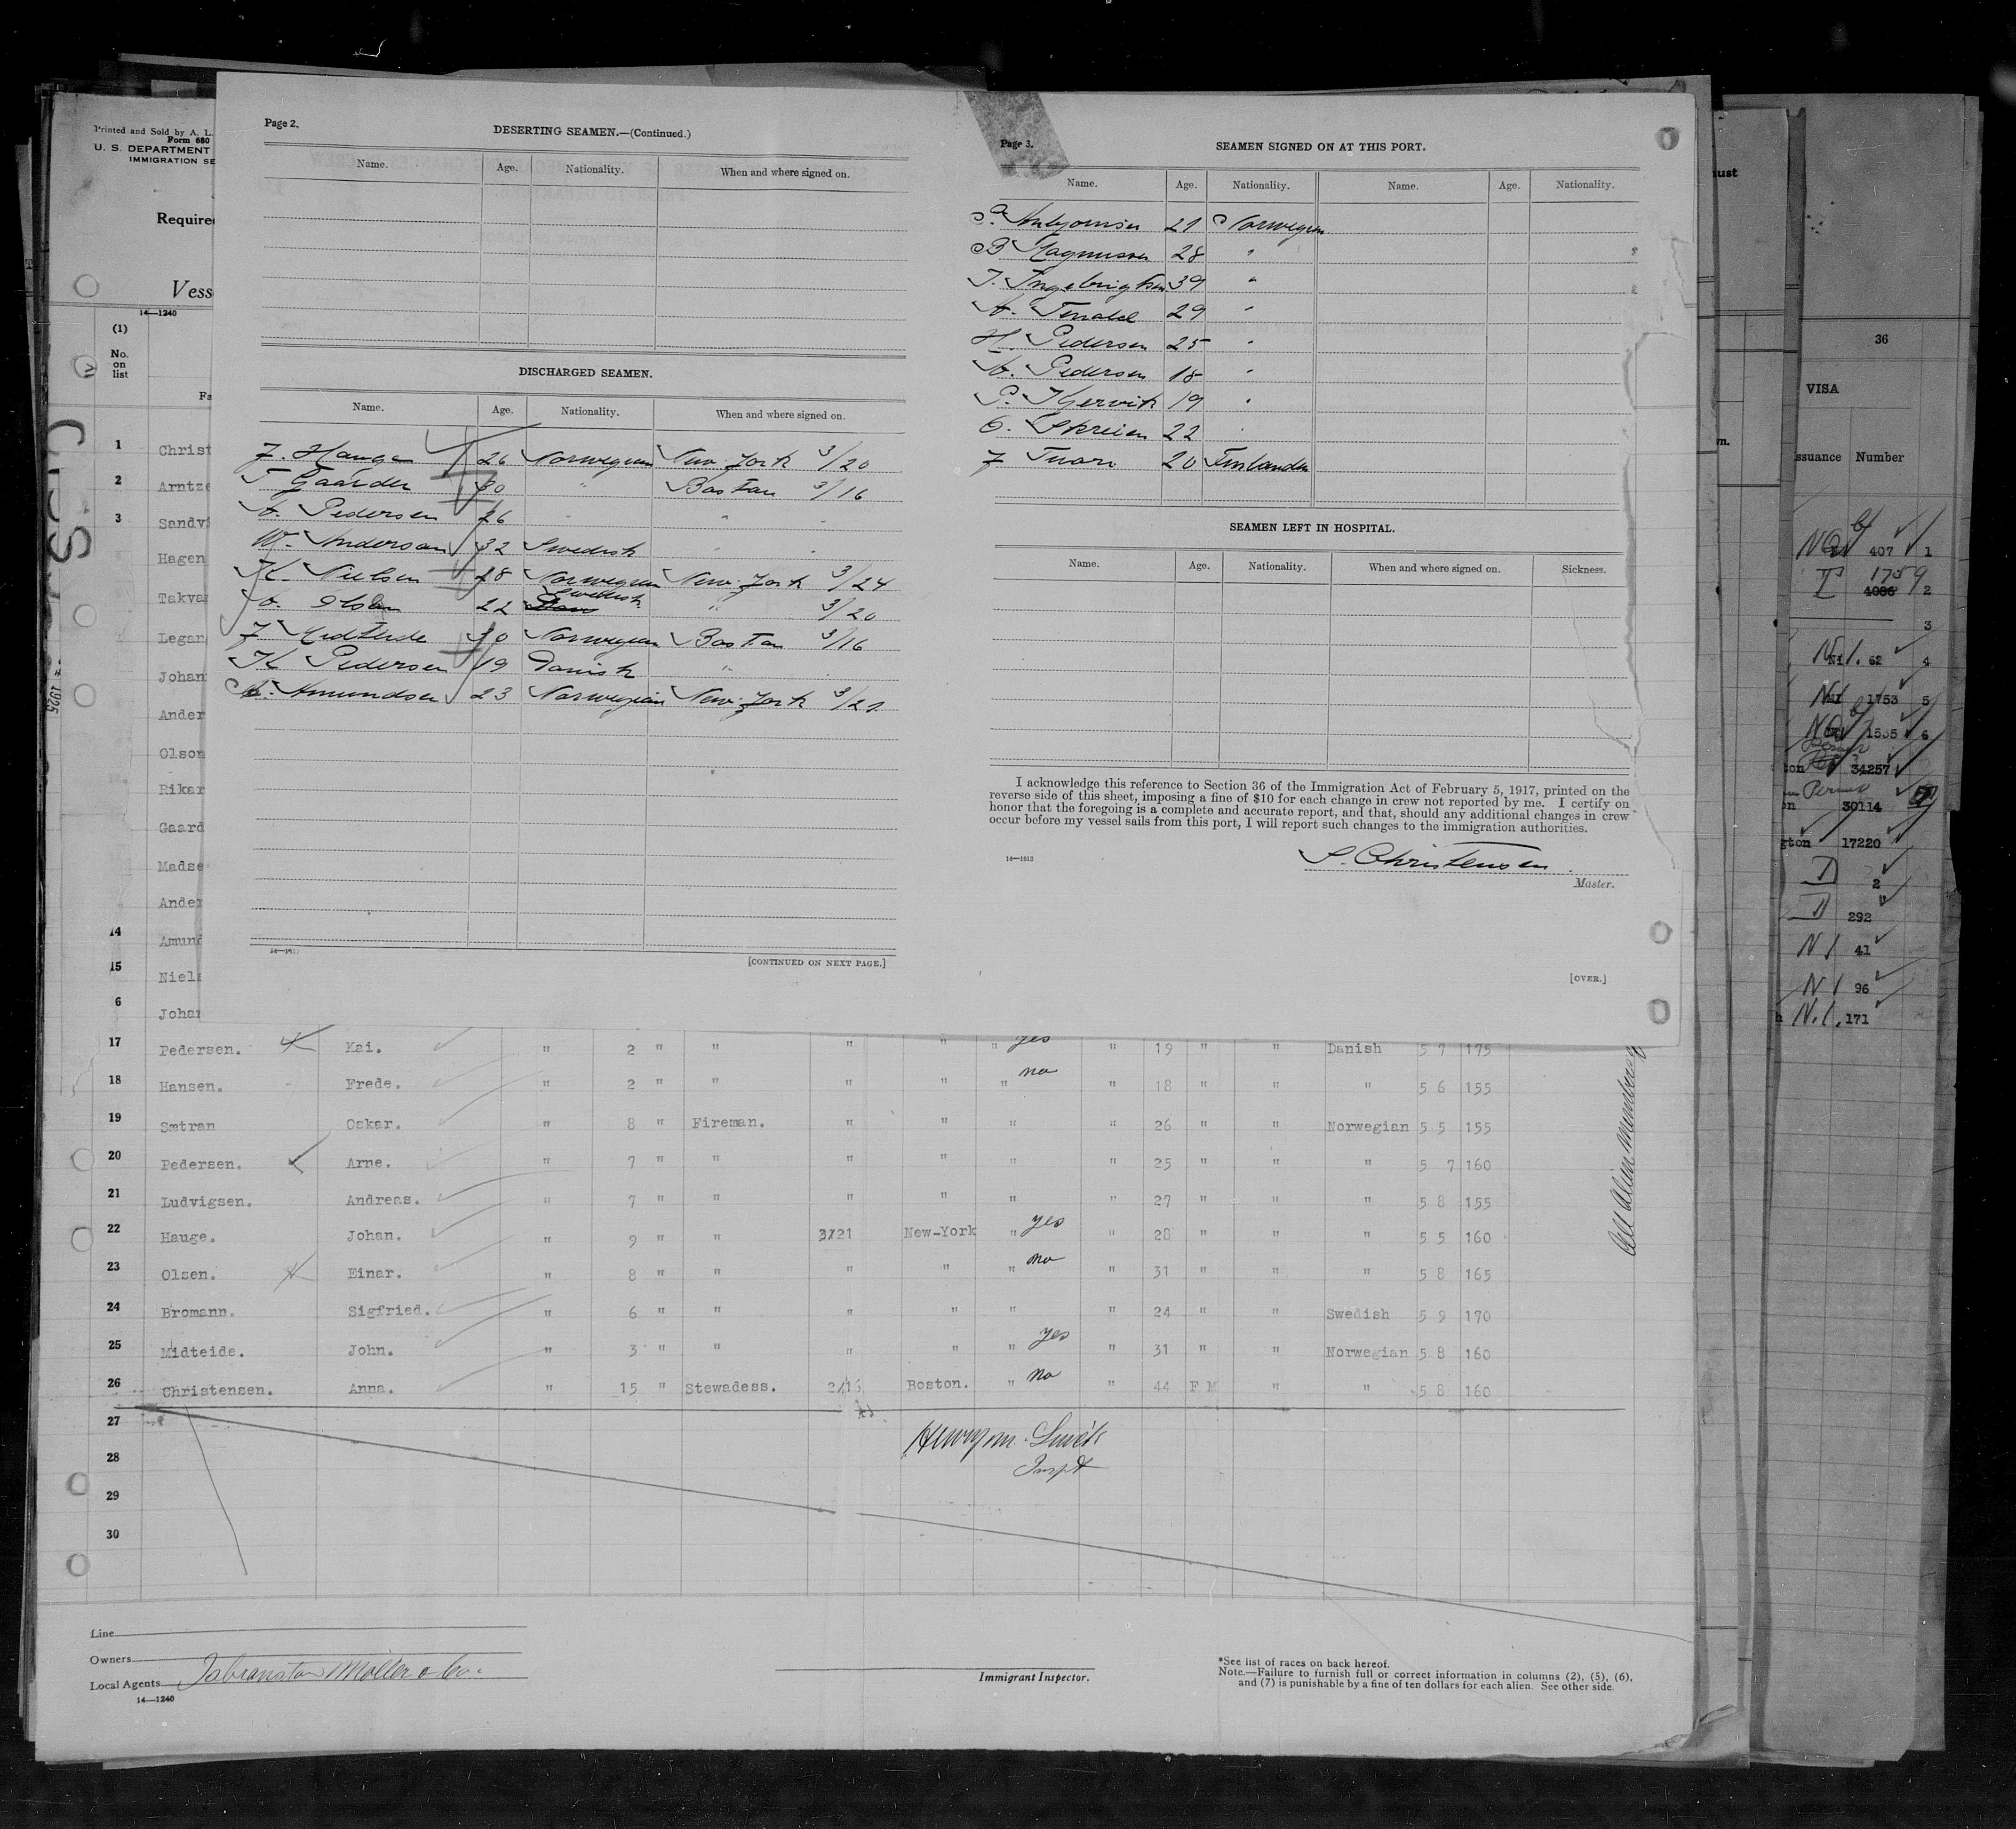 Printed and Sold by A. L.
Form 680
U. S. DEPARTMENT
IMMIGRATION SE
Require
Vess
14—1240
(1)
No.
on
list
Fa
1 Christ
2 Arntze
3 Sandv
Hagen
Takva
Legar
Johan
Ander
Olson
Rikar
Gaard
Madse
Ander
14 Amund
15 Niels
6 Johan
Page 2.
DESERTING SEAMEN.—(Continued.)
Name. Age. Nationality. When and where signed on.
DISCHARGED SEAMEN.
Name. Age. Nationality. When and where signed on.
J. Hauge 26 Norwegian New-York 3/20
T Gaarder 30 " Boston 3/16
A. Pedersen 26 " " "
W. Anderson 32 Swedish " "
K. Nielsen 28 Norwegian New-York 3/24
A. Olsen 22 Swedish " 3/20
J Midteide 30 Norwegian Boston 3/16
K Pedersen 19 Danish " "
A. Amundsen 23 Norwegian New-York 3/21
[CONTINUED ON NEXT PAGE.]
Page 3.
SEAMEN SIGNED ON AT THIS PORT.
Name. Age. Nationality. Name. Age. Nationality.
21 Norwegian
B Magnussen 28 "
J. Ingebrigtsen 39 "
A. 29 "
H. Pedersen 25 "
A. Pedersen 18 "
P. 19 "
O. Skreien 22 "
J Tuori 20 Finlander
SEAMEN LEFT IN HOSPITAL.
Name. Age. Nationality. When and where signed on. Sickness.
I acknowledge this reference to Section 36 of the Immigration Act of February 5, 1917, printed on the
reverse side of this sheet, imposing a fine of $10 for each change in crew not reported by me. I certify on
honor that the foregoing is a complete and accurate report, and that, should any additional changes in crew
occur before my vessel sails from this port, I will report such changes to the immigration authorities.
16—1613
S. Christensen.
Master.
[OVER.]
ust
wn.
36
VISA
ssuance Number
407 1
1759
4086 2
3
N1. 62 4
N1 1753 5
1535 6
ton 34257
on Permit 30114
gton 17220
D 2
D 292
N1 41
N1 96
N.1. 171
17 Pedersen. Kai. " 2 " " " " " yes " 19 " " Danish 5 7 175
18 Hansen. Frede. " 2 " " " " " no " 18 " " " 5 6 155
19 Sætran Oskar. " 8 " Fireman. " " " " 26 " " Norwegian 5 5 155
20 Pedersen. Arne. " 7 " " " " " " 25 " " " 5 7 160
21 Ludvigsen. Andreas. " 7 " " " " " " 27 " " " 5 8 155
22 Hauge. Johan. " 9 " " 3/21 New-York " yes " 28 " " " 5 5 160
23 Olsen. Einar. " 8 " " " " " no " 31 " " " 5 8 165
24 Bromann. Sigfried. " 6 " " " " " " 24 " " Swedish 5 9 170
25 Midteide. John. " 3 " " " " " yes " 31 " " Norwegian 5 8 160
26 Christensen. Anna. " 15 " Stewadess. 2/16 Boston. " no " 44 F M " " 5 8 160
27
28
29
30
Henry M. Smith
Inspt
All Alien Members
Line
Owners
Local Agents Möller & Co.
14—1240
Immigrant Inspector.
*See list of races on back hereof.
Note.—Failure to furnish full or correct information in columns (2), (5), (6),
and (7) is punishable by a fine of ten dollars for each alien. See other side.
1925